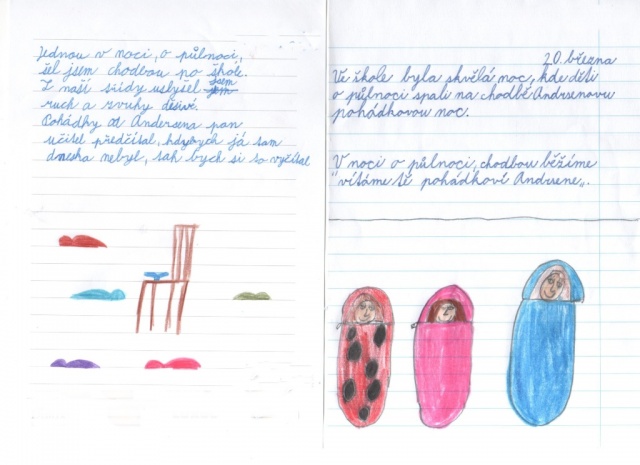 Jednou v noci, o půlnoci,
šel jsem chodbou po škole.
Z naší třídy uslyšel jsem
ruch a zvuky děsivé.
Pohádky od Andersena pan
učitel předčítal, kdybych já sám
dneska nebyl, tak bych si to vyčítal
20. března
Ve škole byla skvělá noc, kde děti
o půlnoci spali na chodbě Andrsenovu
pohádkovou noc.
V noci o půlnoci, chodbou běžíme
"vítáme tě pohádkové Andrsene".